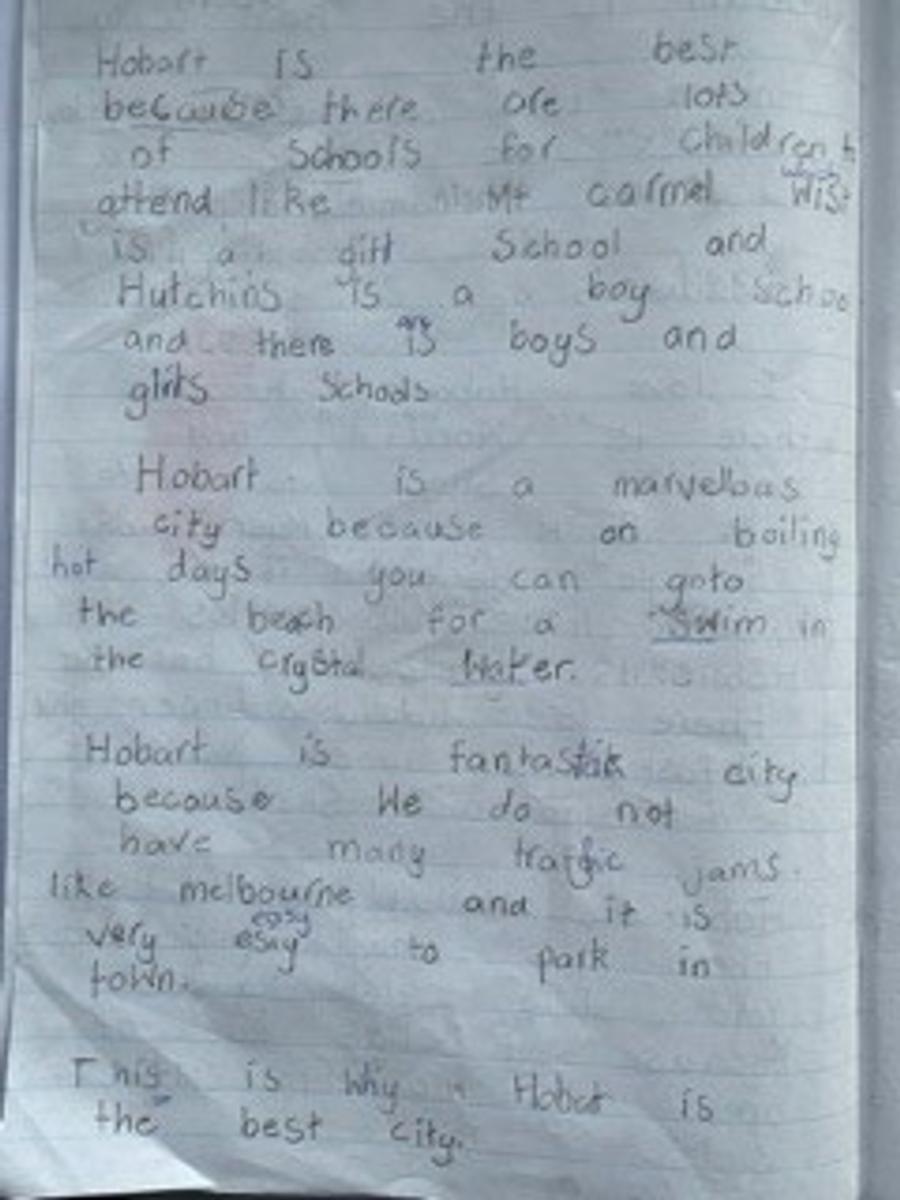 Hobart is the best
because there are lots
of Schools for children
attend like Mt carmel
is a girl School and
Hutchins is a boy Schoo
are
and there is boys and
girls Schools
Hobart is a marvellous
city because on boiling
hot days you can goto
the beach for a Swim in
the crystal Water.
Hobart is fantastic city
because We do not
have many traffic jams.
like melbourne and it is
easy
very esay to park in
town.
This is why Hobat is
the best city.